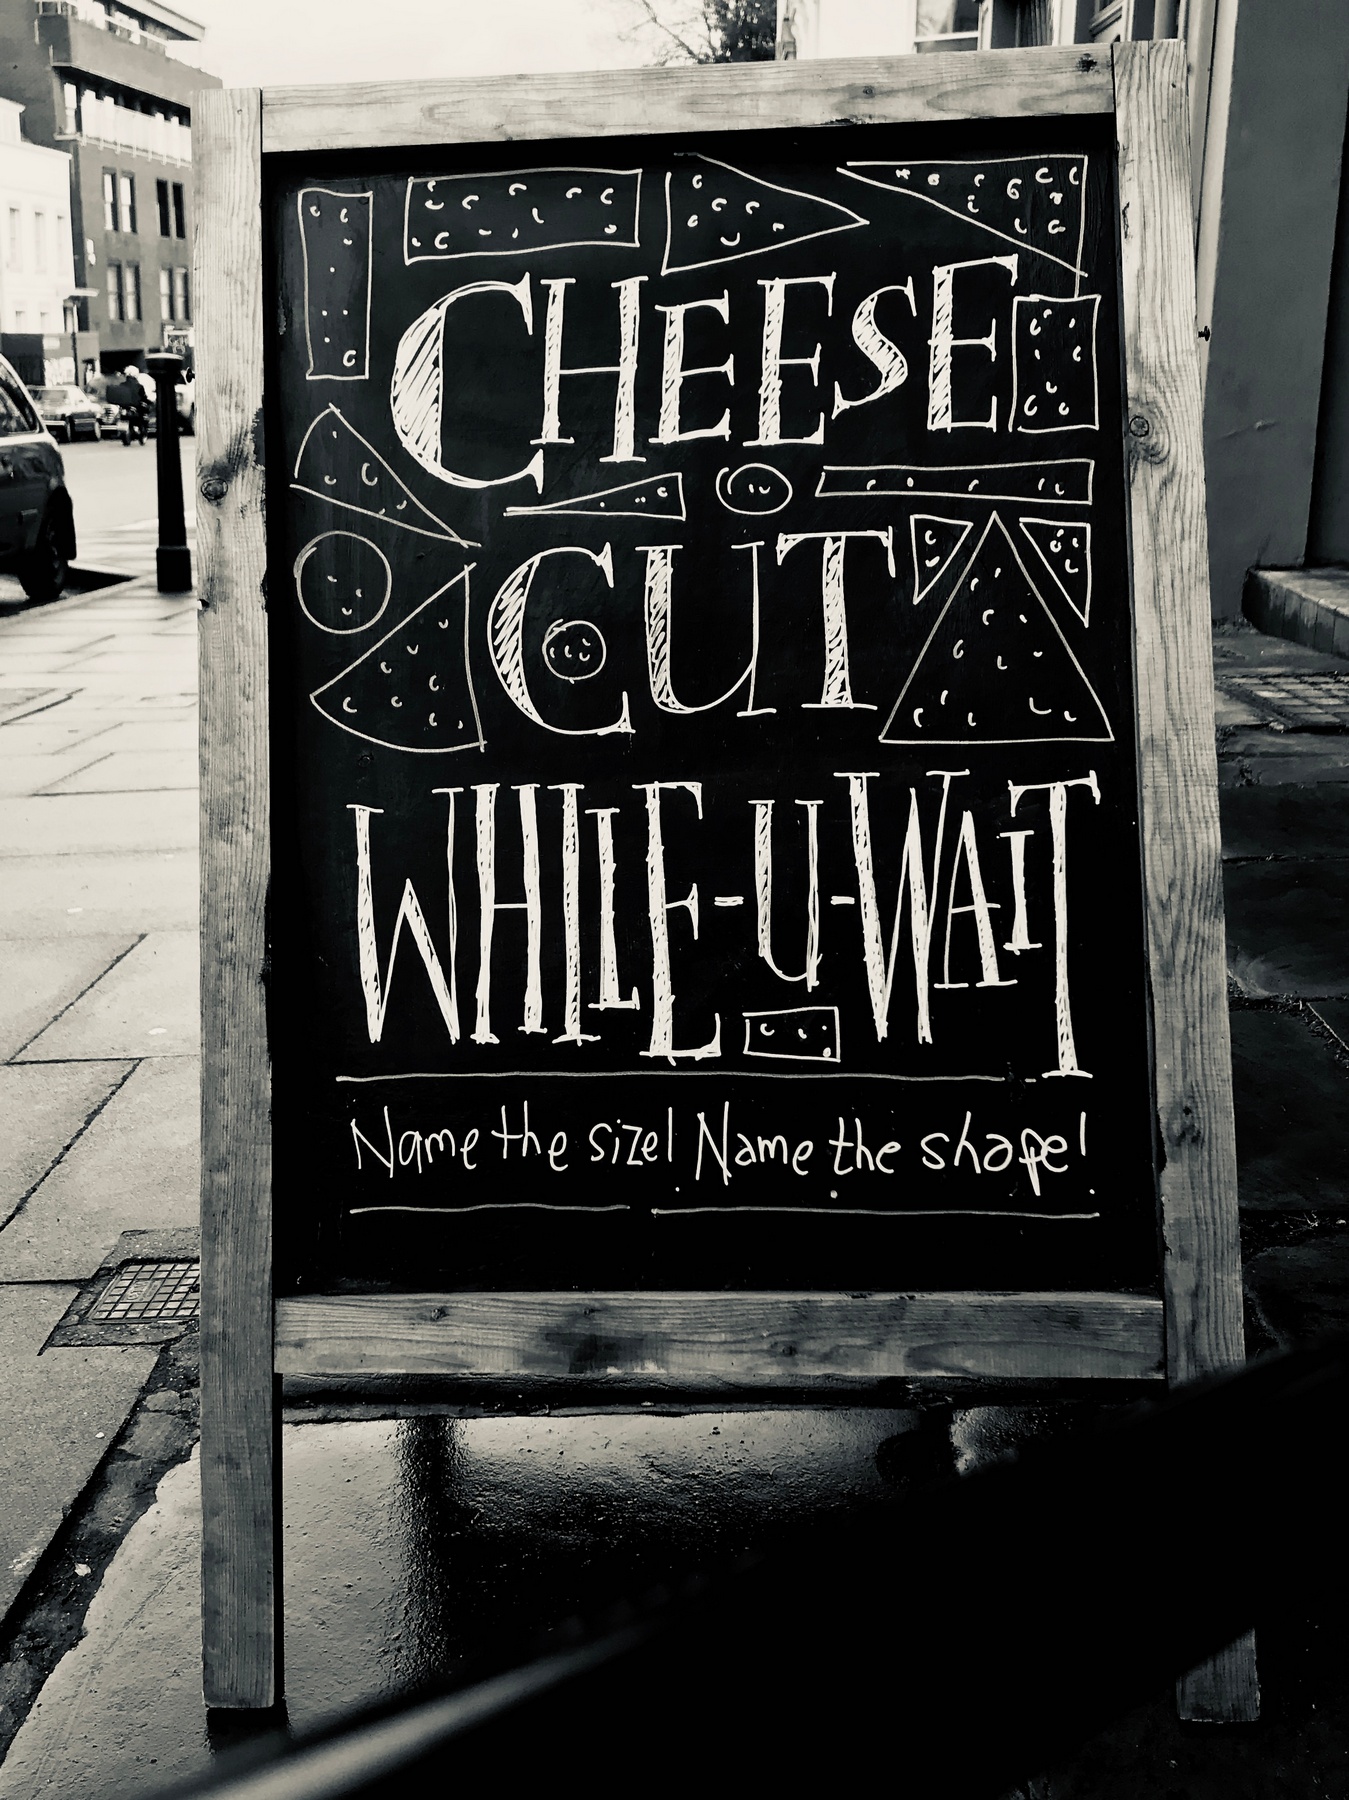 CHEESE
CUT
WHILE-U-WAIT
Name the size! Name the shape!